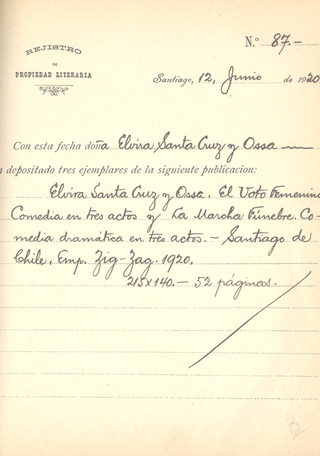 REJISTRO
DE
PROPIEDAD LITERARIA
N.º 87.-
Santiago, 12, Junio de 1920
Con esta fecha doña Elvira Santa Cruz y Ossa
a depositado tres ejemplares de la siguiente publicacion:
Elvira Santa Cruz y Ossa. El Voto Femenino
Comedia en tres actos y La Marcha Fúnebre. Co-
media dramática en tres actos.- Santiago de
Chile, Emp. Zig-Zag. 1920.
215x140.- 52 páginas.